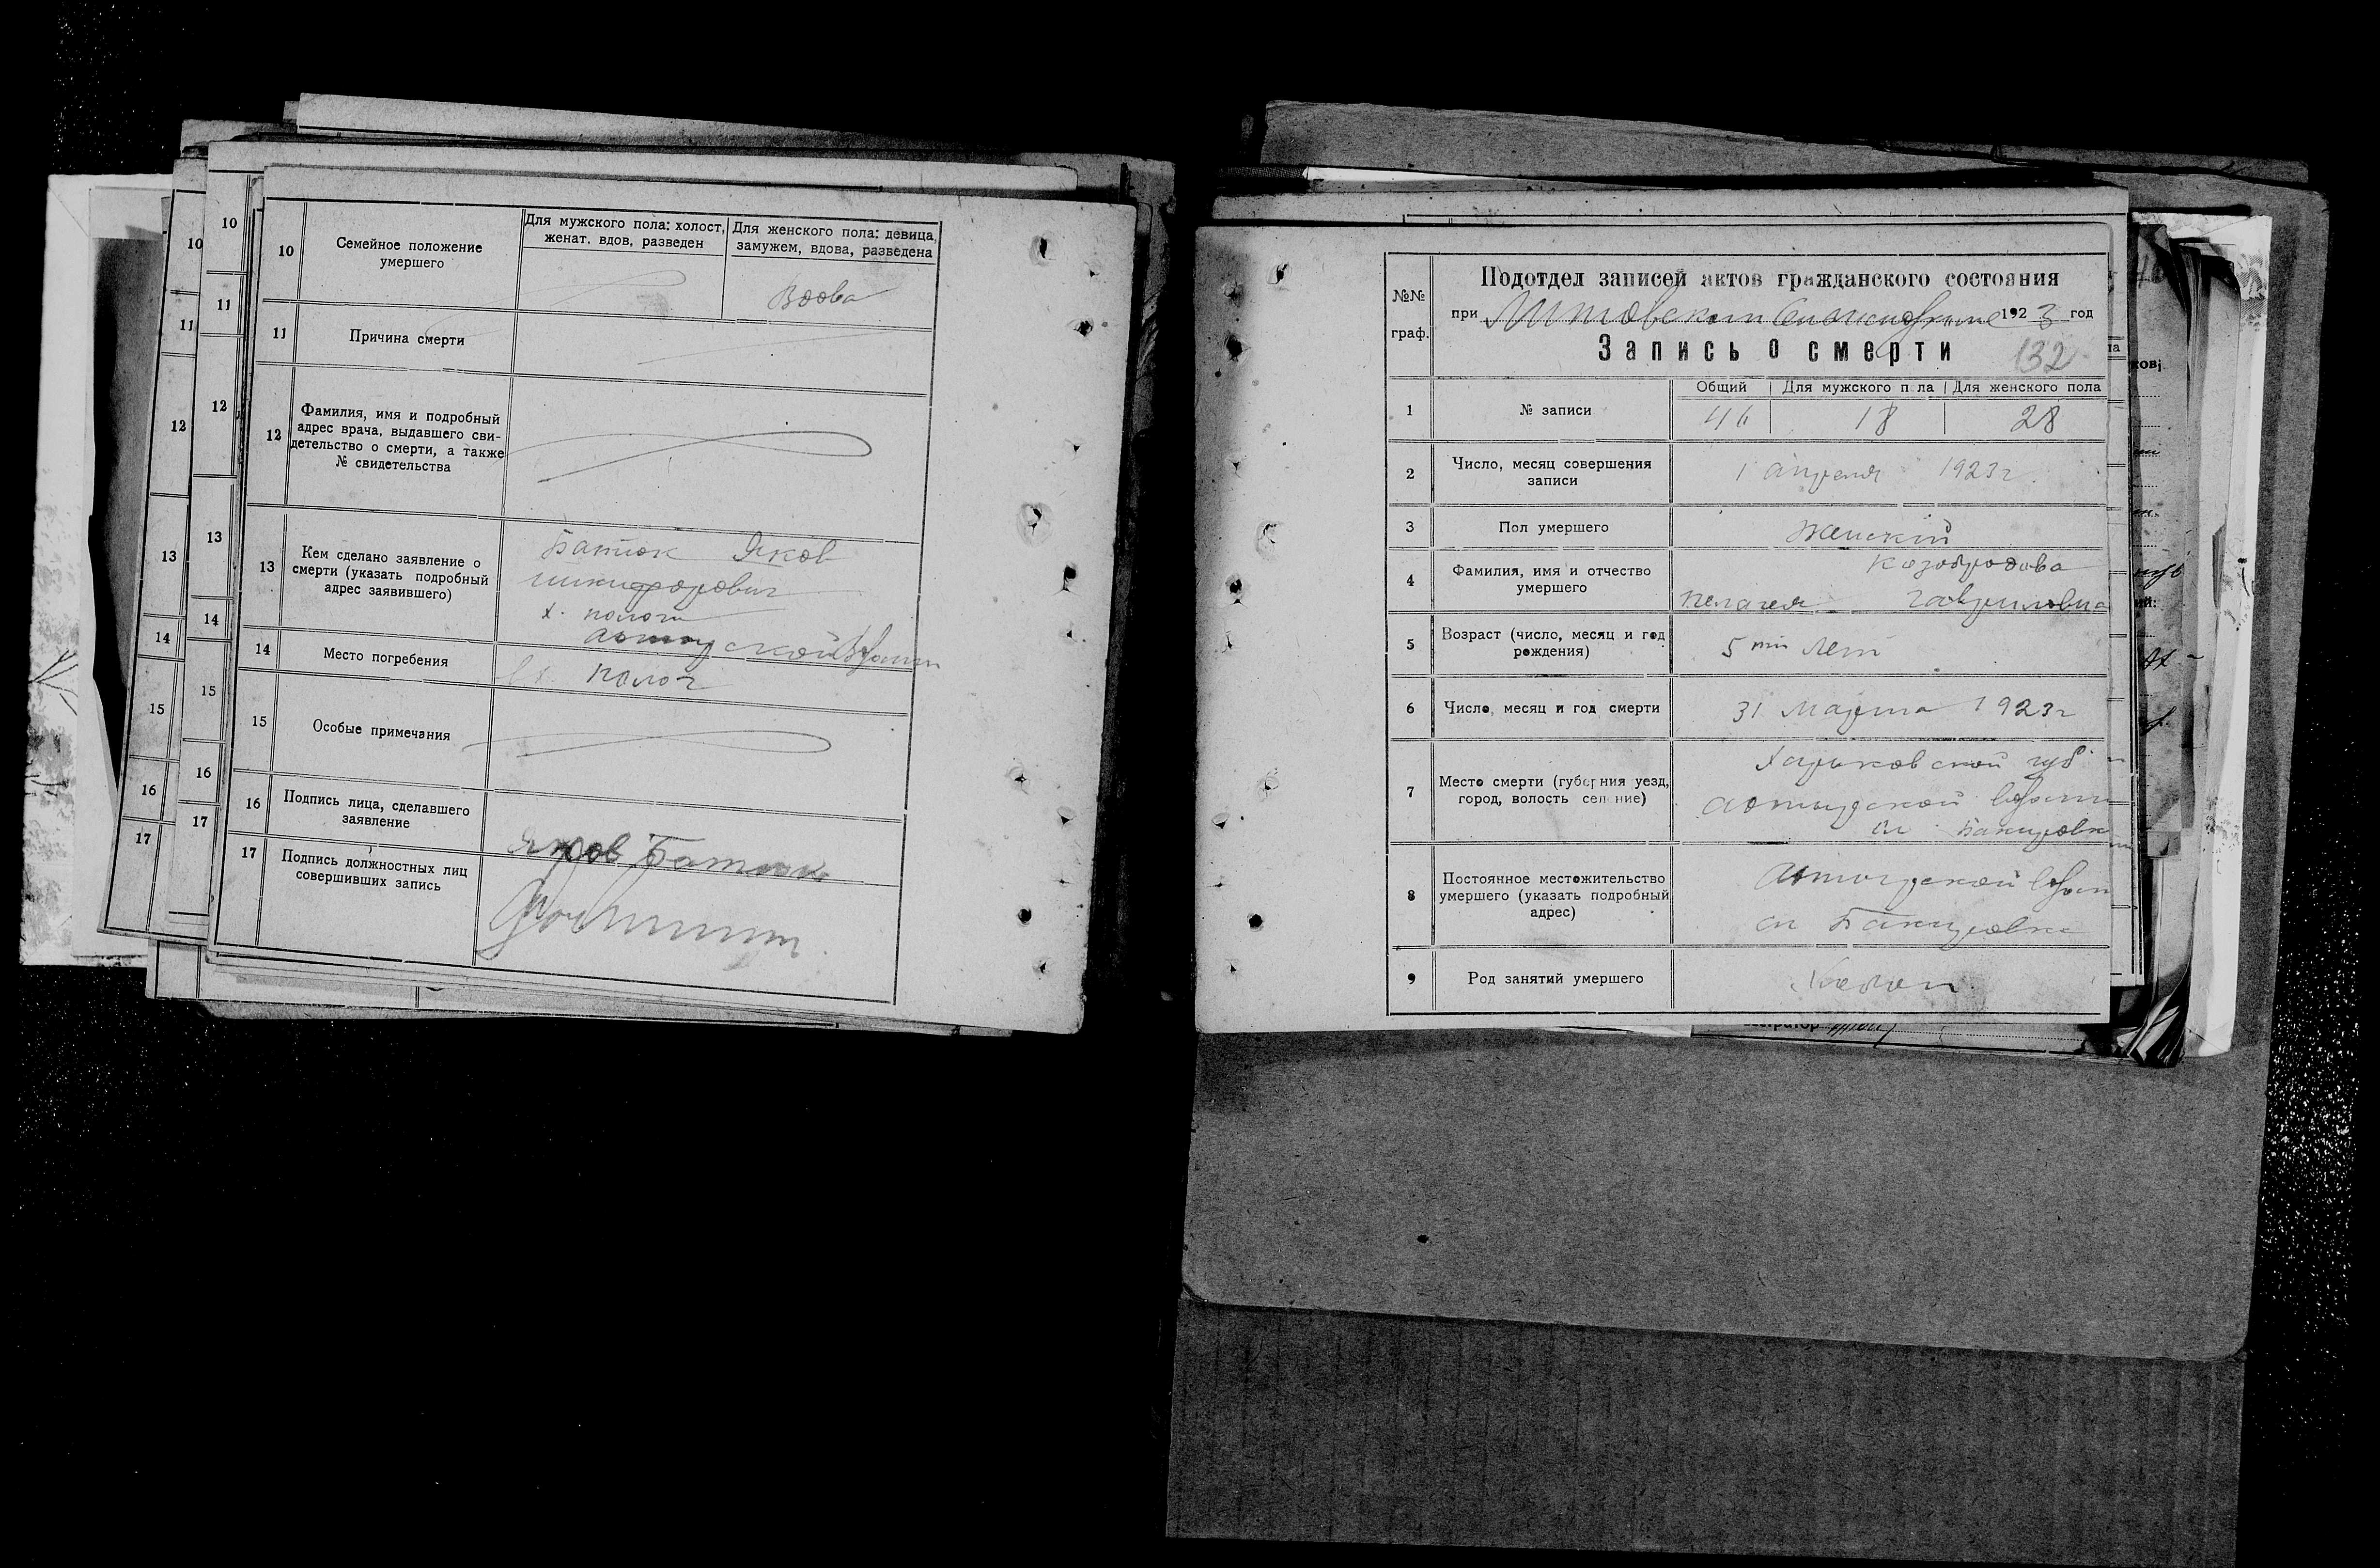 10
Семейное положение
умершего
Для мужского пола: холост,
женат, вдов, разведен
Для женского пола: девица,
замужем, вдова, разведена
Вдова
11
Причина смерти
12
Фамилия, имя и подробный
адрес врача, выдавшего сви-
детельство о смерти, а также
№ свидетельства
13
Кем сделано заявление о
смерти (указать подробный
адрес заявившего)
Батюк Яков
никифорович
х.
14
Место погребения
15
Особые примечания
16
Подпись лица, сделавшего
заявление
Яков Батюк
17
Подпись должностных лиц
совершивших запись
10
11
12
13
14
15
16
17
10
11
12
13
14
15
16
17
№№
граф.
Подотдел записей актов гражданского состояния
при 1923 год
Запись о смерти
132
Общий
Для мужского п ла
Для женского пола
1
№ записи
46
18
28
2
Число, месяц совершения
записи
1 апреля 1923г.
3
Пол умершего
Женский
4
Фамилия, имя и отчество
умершего
Козобродова
пелагея гавриловна
5
Возраст (число, месяц и год
рождения)
5ти лет
6
Число, месяц и год смерти
31 Марта 1923г
7
Место смерти (губерния уезд,
город, волость селение)
Харьковской губ
8
Постоянное местожительство
умершего (указать подробный
адрес)
сл Бакировка
9
Род занятий умершего